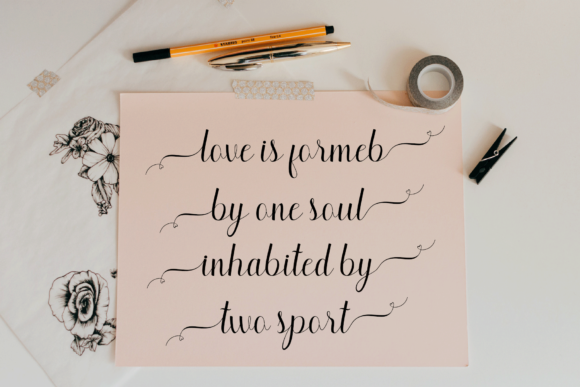 love is formeb
by one soul
inhabited by
two sport